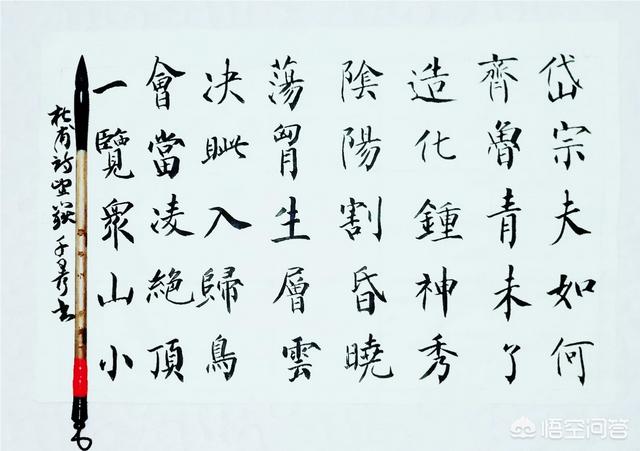 岱宗夫如何
齊魯青未了
造化鍾神秀
陰陽割昏曉
蕩胷生層雲
決眦入歸鳥
會當凌絕頂
一覽衆山小
杜甫詩望嶽 書
悟空问答